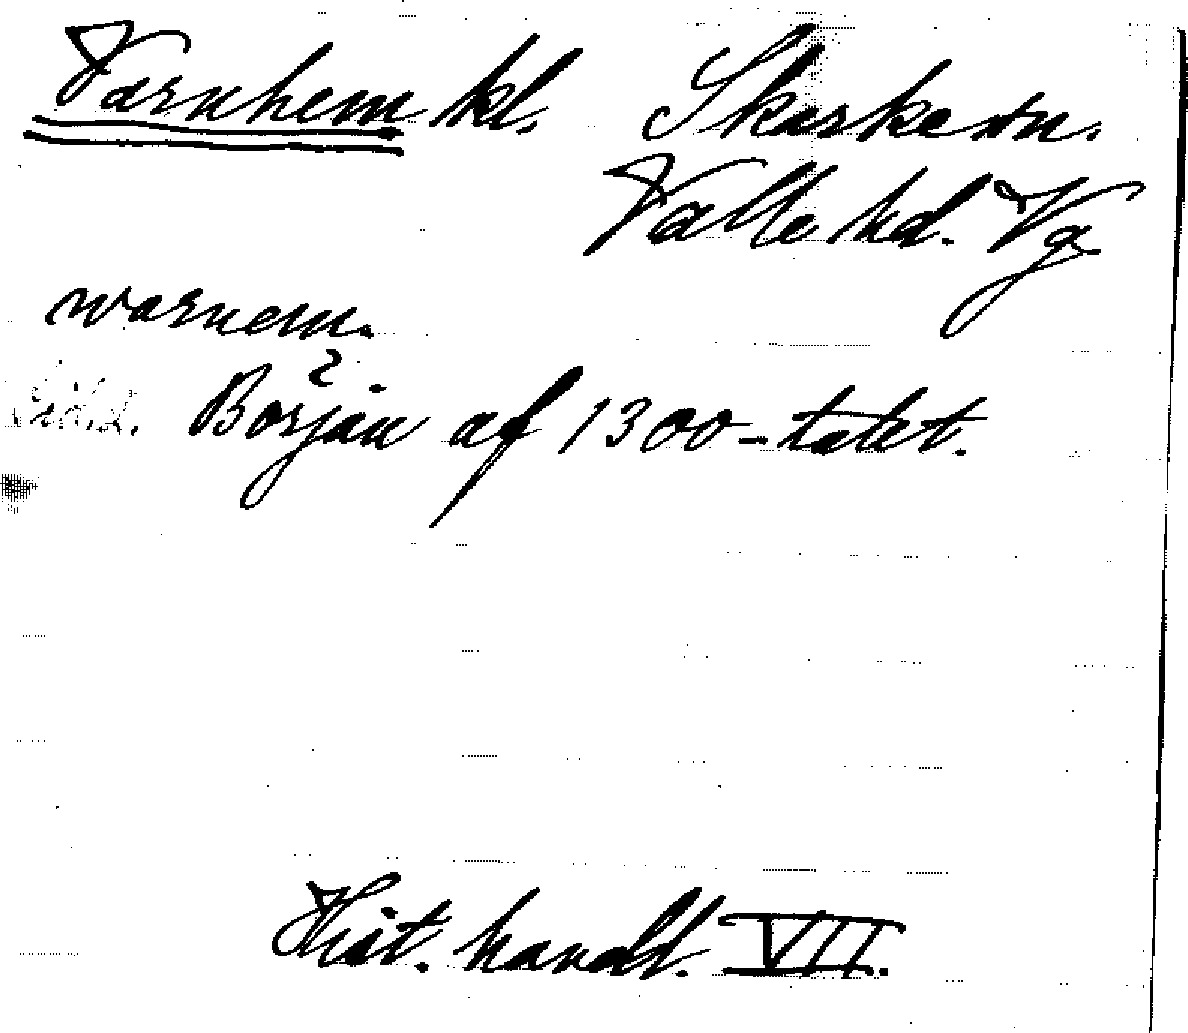 Varnhem kl. Skarke sn.
Valle hd. Vg
warnem.
Början af 1300-talet.
Hist. handl. VII.